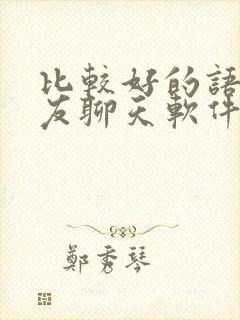 比較好的語
友聊天軟件
鄭秀琴